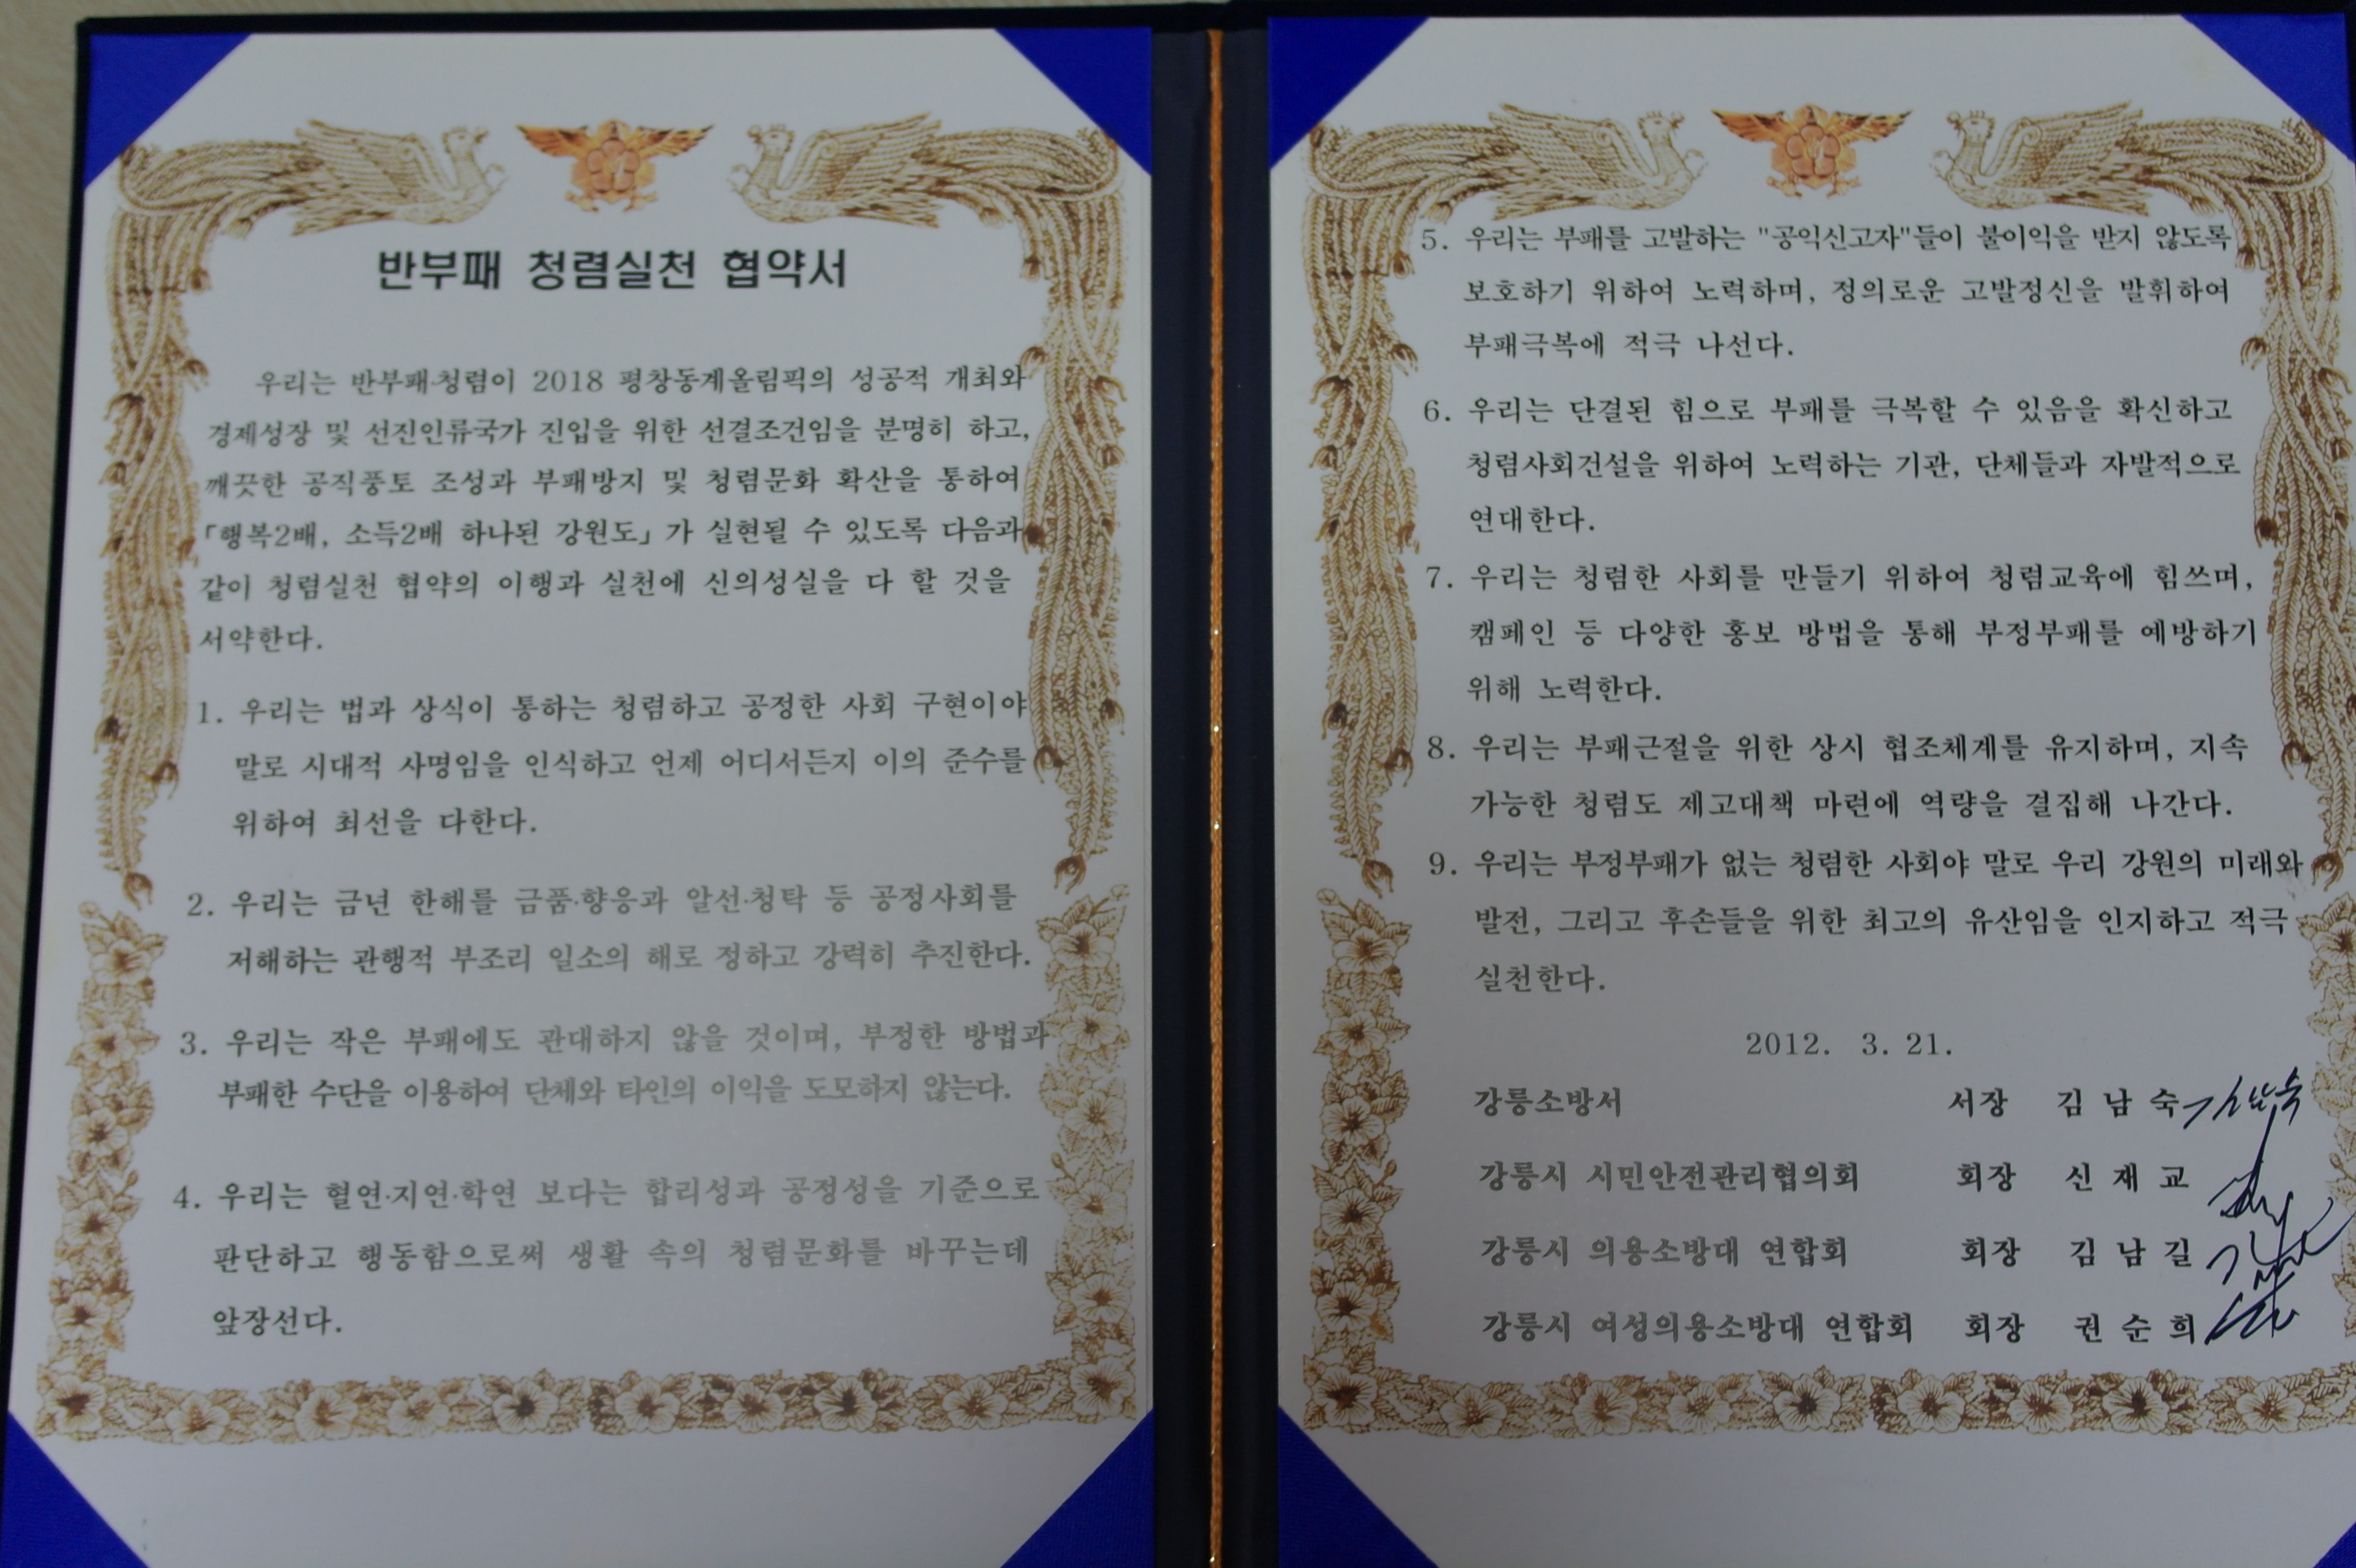 반부패 청렴실천 협약서
우리는 반부패·청렴이 2018 평창동계올림픽의 성공적 개최와
경제성장 및 선진인류국가 진입을 위한 선결조건임을 분명히 하고,
깨끗한 공직풍토 조성과 부패방지 및 청렴문화 확산을 통하여
「행복2배, 소득2배 하나된 강원도」가 실현될 수 있도록 다음과
같이 청렴실천 협약의 이행과 실천에 신의성실을 다 할 것을
서약한다.
1. 우리는 법과 상식이 통하는 청렴하고 공정한 사회 구현이야
말로 시대적 사명임을 인식하고 언제 어디서든지 이의 준수를
위하여 최선을 다한다.
2. 우리는 금년 한해를 금품·향응과 알선·청탁 등 공정사회를
저해하는 관행적 부조리 일소의 해로 정하고 강력히 추진한다.
3. 우리는 작은 부패에도 관대하지 않을 것이며, 부정한 방법과
부패한 수단을 이용하여 단체와 타인의 이익을 도모하지 않는다.
4. 우리는 혈연·지연·학연 보다는 합리성과 공정성을 기준으로
판단하고 행동함으로써 생활 속의 청렴문화를 바꾸는데
앞장선다.
5. 우리는 부패를 고발하는 "공익신고자"들이 불이익을 받지 않도록
보호하기 위하여 노력하며, 정의로운 고발정신을 발휘하여
부패극복에 적극 나선다.
6. 우리는 단결된 힘으로 부패를 극복할 수 있음을 확신하고
청렴사회건설을 위하여 노력하는 기관, 단체들과 자발적으로
연대한다.
7. 우리는 청렴한 사회를 만들기 위하여 청렴교육에 힘쓰며,
캠페인 등 다양한 홍보 방법을 통해 부정부패를 예방하기
위해 노력한다.
8. 우리는 부패근절을 위한 상시 협조체계를 유지하며, 지속
가능한 청렴도 제고대책 마련에 역량을 결집해 나간다.
9. 우리는 부정부패가 없는 청렴한 사회야 말로 우리 강원의 미래와
발전, 그리고 후손들을 위한 최고의 유산임을 인지하고 적극
실천한다.
2012. 3. 21.
강릉소방서 서장 김 남 숙 김남숙
강릉시 시민안전관리협의회 회장 신 재 교
강릉시 의용소방대 연합회 회장 김 남 길
강릉시 여성의용소방대 연합회 회장 권 순 희